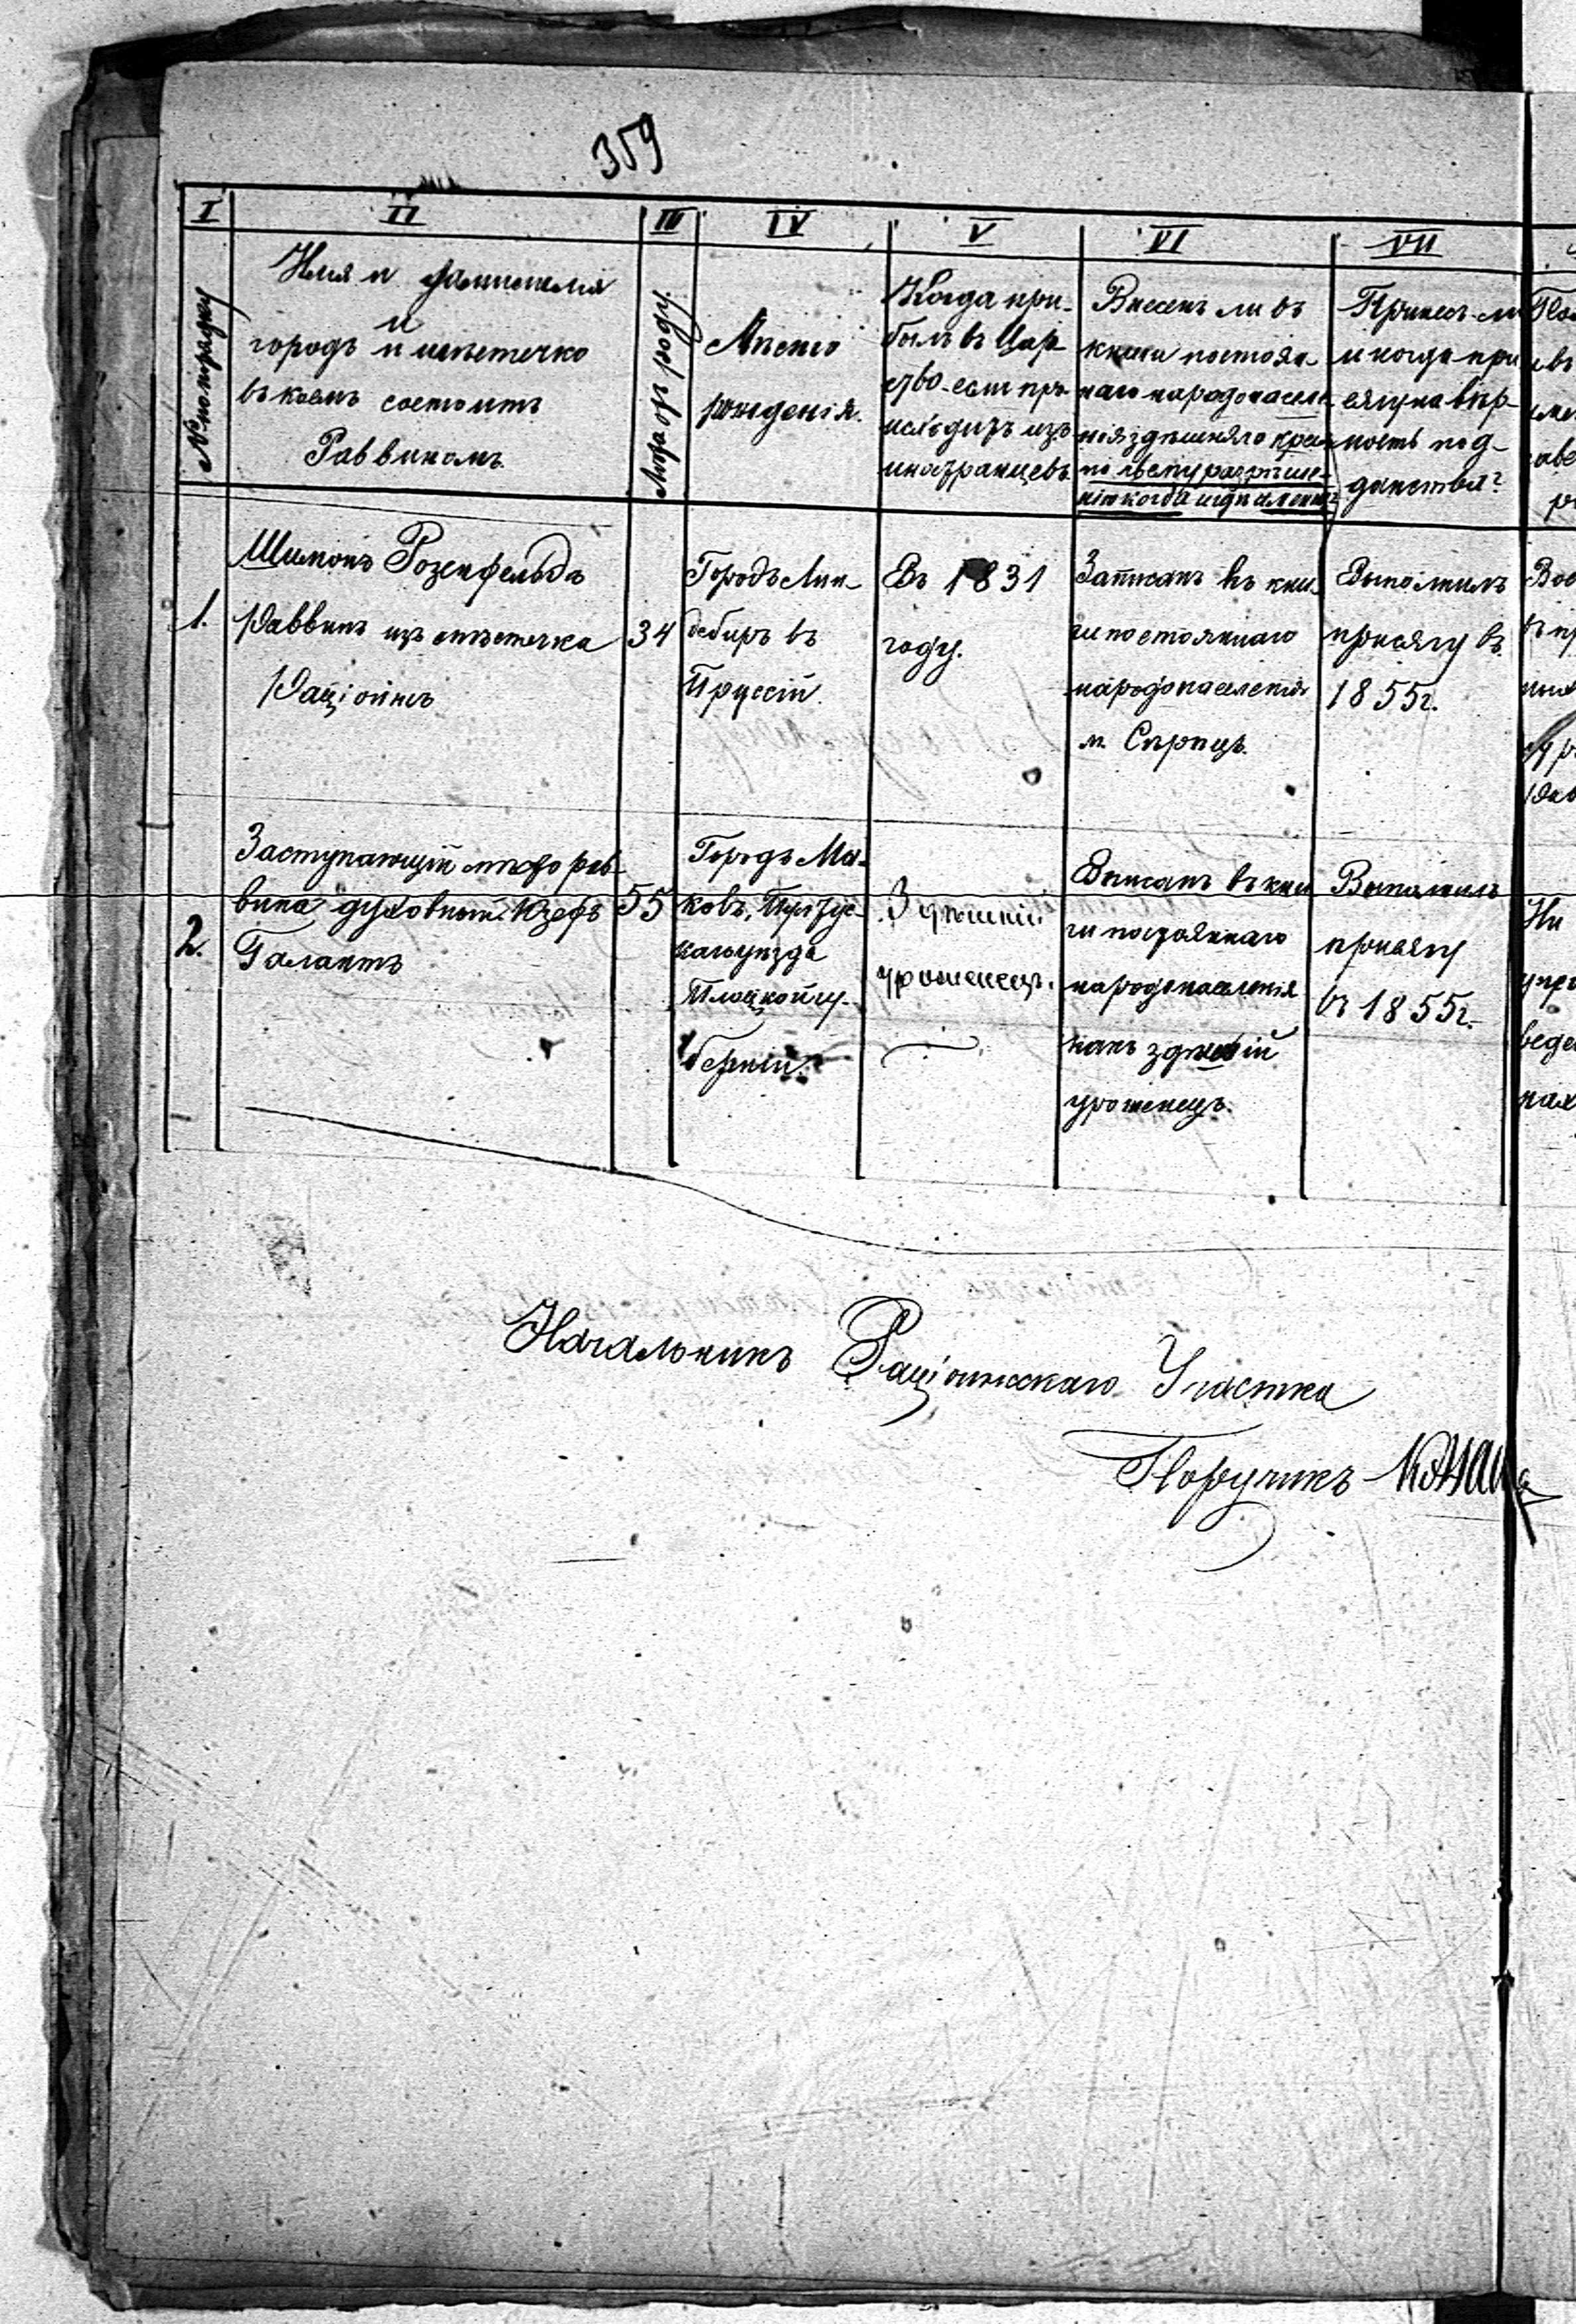 359
I II III IV V VI VII
№ по порядку
Имя и фамилія
и
городъ и мѣстечко
въ коемъ состоитъ
Раввиномъ
Лѣта отъ роду.
Мѣсто
рожденія.
Когда при-
былъ въ Цар-
ство если про-
исходитъ изъ
иностранцевъ.
Внесенъ ли въ
книги постоян-
наго народонаселе-
нія здѣшняго края
по чьему разрѣше-
нію когда и гдѣ
Принесъ ли
и когда при
сягу на вѣр-
ность под-
данства?
1.
Шимонъ Розенфельдъ
Раввинъ изъ мѣстечка
Раціонжъ
34
Городъ Лин-
въ
Пруссіи.
Въ 1831
году.
Записанъ въ кни-
ги постояннаго
народонаселенія
м. Серпцъ.
Выполнилъ
присягу въ
1855г.
2.
Заступающій мѣсто рав-
вина духовный Юзефъ
Галантъ
55
Городъ Ма-
ковъ, Пултус-
каго уѣзда
Плоцкой гу-
берніи.
Здѣшній
уроженецъ.
Вписанъ въ кни
ги постояннаго
народонаселенія
какъ здѣшній
уроженецъ.
Выполнилъ
присягу
въ 1855г.
Начальникъ Раціонжскаго Участка
Поручикъ